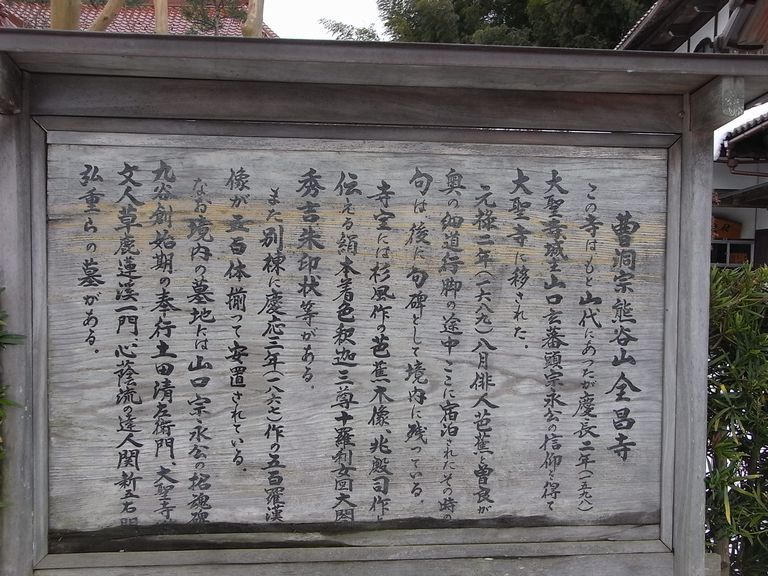 曹洞宗熊谷山全昌寺
この寺はもと山代にあったが慶長二年(一五九八)
大聖寺城主山口玄蕃頭宗永公の信仰を得て
大聖寺に移された。
元禄二年(一六八九)八月俳人芭蕉と曽良が
奥の細道行脚の途中ここに宿泊されたその時の
句は後に句碑として境内に残っている。
寺宝には杉風作の芭蕉木像、兆殿司作と
伝える絹本着色釈迦三尊十羅刹女図大閤
秀吉朱印状等がある。
また別棟に慶応三年(一八六七)作の五百羅漢
像が五百体揃って安置されている。
なお境内の墓地には山口宗永公の招魂碑
九谷創始期の奉行土田清左衛門、大聖寺
文人草鹿蓮渓一門、心蔭流の達人関新五右門
弘重らの墓がある。